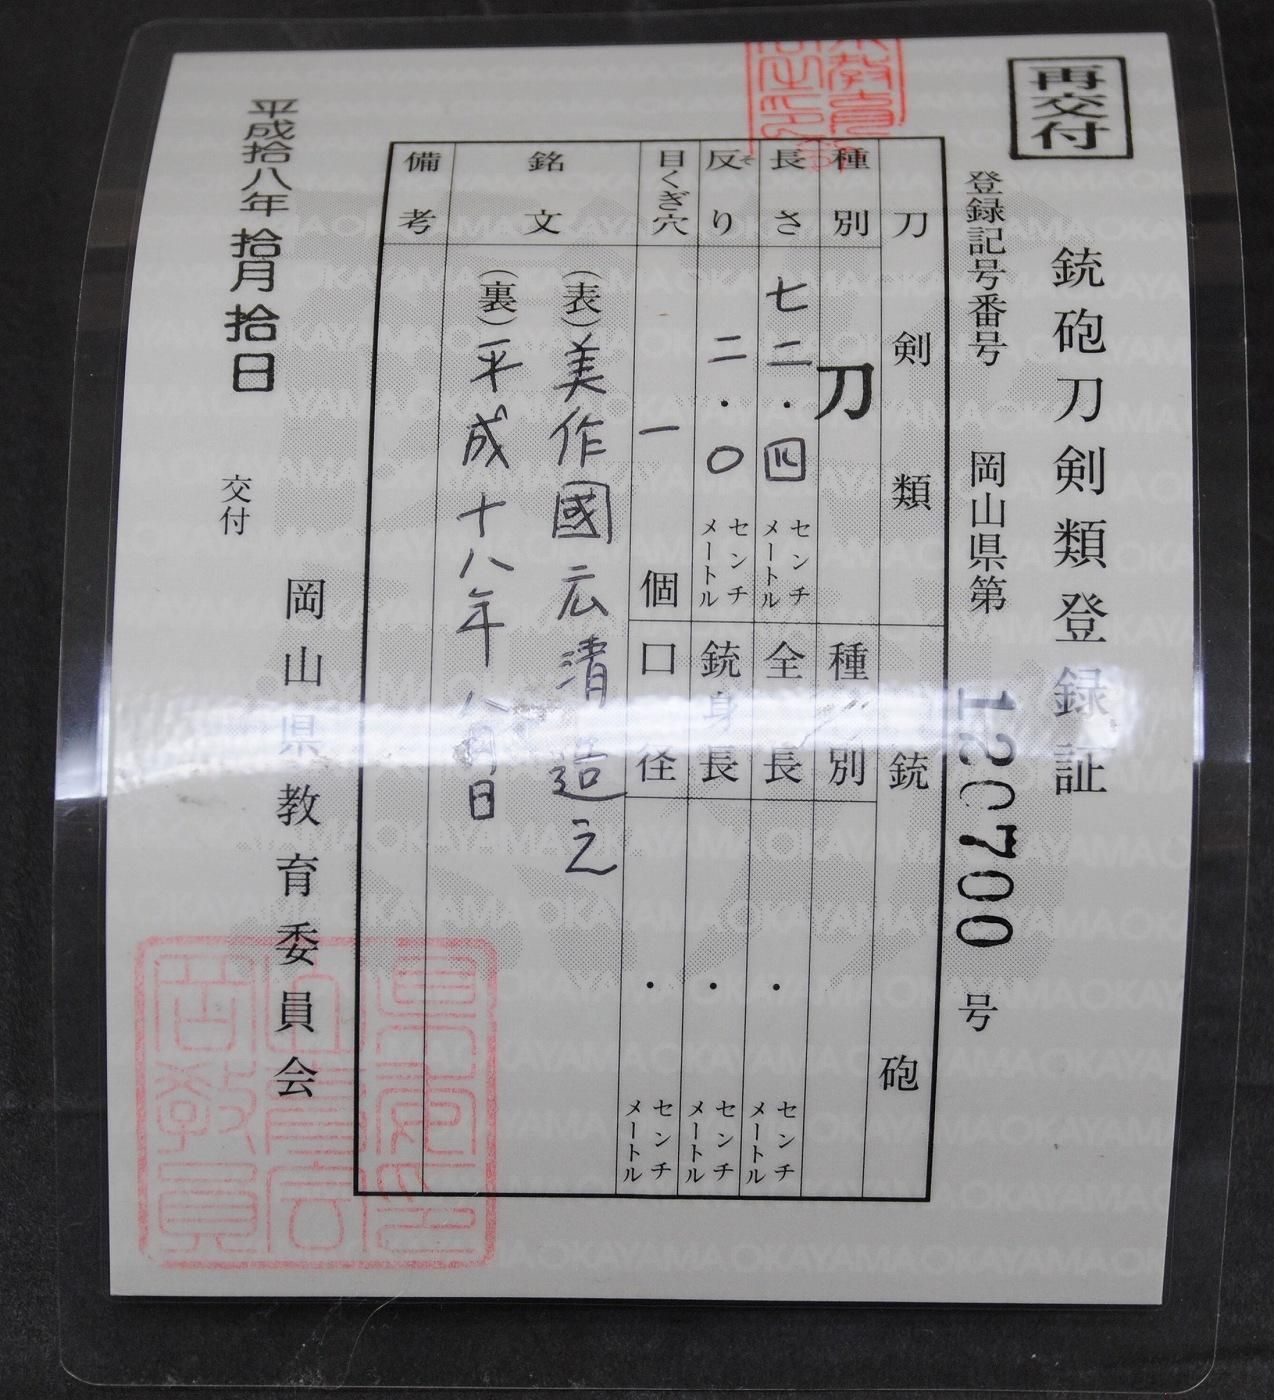 再交付
銃砲刀剣類登録証
登録記号番号 岡山県第 120700 号
刀剣類
種別 刀
長さ 七二・四 センチメートル
反り 二・〇 センチメートル
目くぎ穴 一 個
銘文
(表)美作國広清造之
(裏)平成十八年八月日
備考
銃砲
種別
全長 ・ センチメートル
銃身長 ・ センチメートル
口径 ・ センチメートル
平成拾八年拾月拾日 交付
岡山県教育委員会